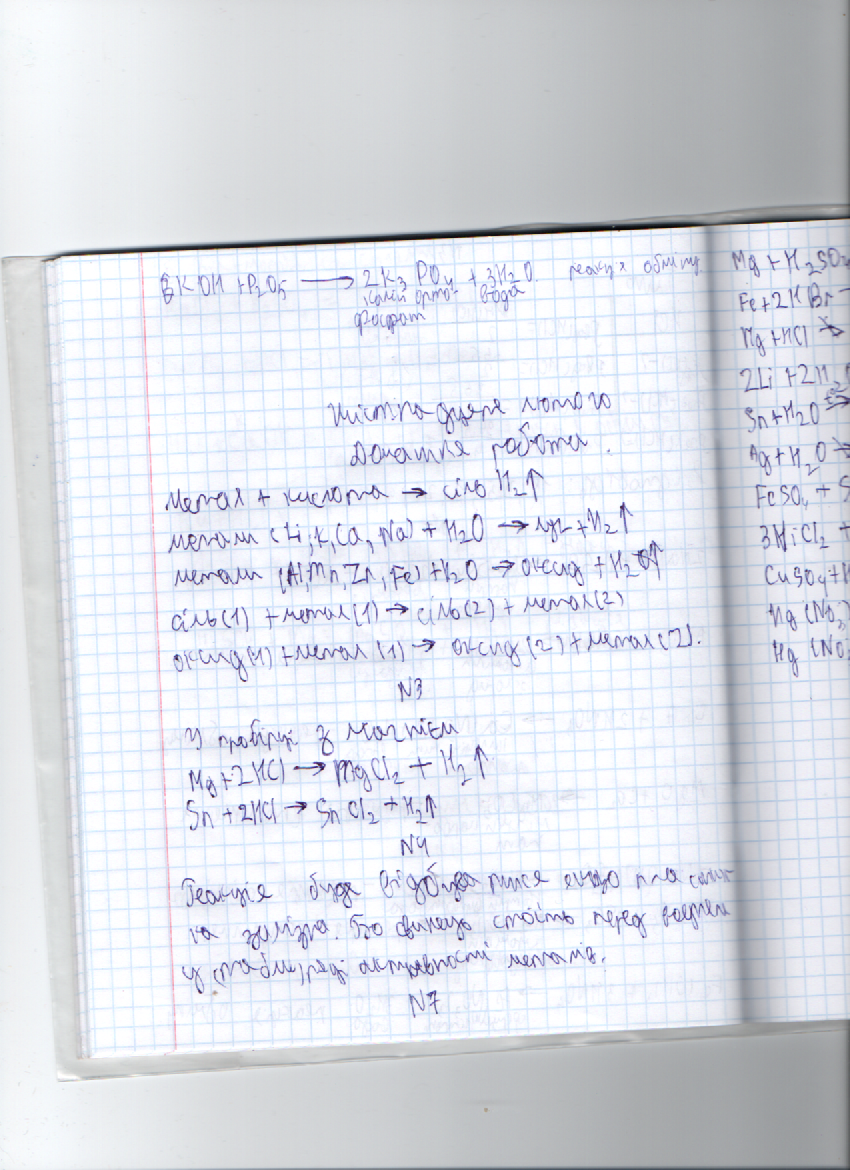 6KOH + P2O5 → 2K3PO4 + 3H2O. реакція обміну
калій орто- вода
фосфат
Шістнадцяте лютого
Домашня робота.
Метал + кислота → сіль H2↑
метали (Li, K, Ca, Na) + H2O → луг + H2↑
метали (Al, Mn, Zn, Fe) + H2O → оксид + H2↑
сіль(1) + метал(1) → сіль(2) + метал(2)
оксид(1) + метал(1) → оксид(2) + метал(2).
N3
У пробірці з магнієм
Mg + 2HCl → MgCl2 + H2↑
Sn + 2HCl → SnCl2 + H2↑
N4
Реакція буде відбуватися якщо
заліза. Бо свинець стоїть перед воднем
у (табли) ряді активності металів.
N7
Mg + H2SO4
Fe + 2HBr
Mg + HCl
2Li + 2H2O
Sn + H2O
Ag + H2O
FeSO4 + S
3NiCl2 +
CuSO4 + H
Hg(NO3)
Hg(NO3